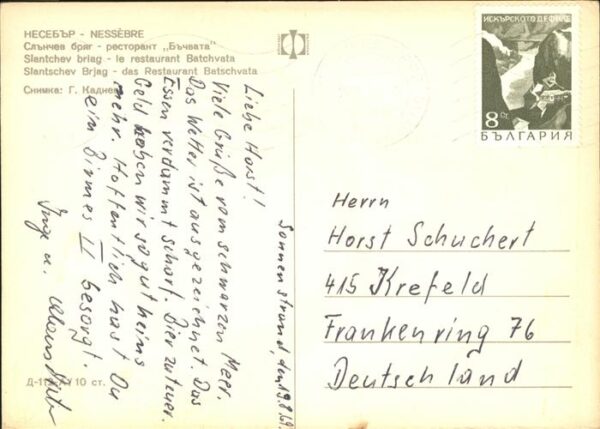 НЕСЕБЪР - NESSÈBRE
Слънчев бряг - ресторант „Бъчвата"
Slantchev briag - le restaurant Batchvata
Slantschev Brjag - das Restaurant Batschvata
Снимка: Г.
ИСКЪРСКОТО ДЕФИЛЕ
8 СТ.
БЪЛГАРИЯ
Sonnenstrand, den 19.8.69
Liebe Horst!
Viele Grüße vom schwarzen Meer.
Das Wetter ist ausgezeichnet. Das
Essen verdammt scharf. Bier zu teuer.
Geld haben wir so gut keins
mehr. Hoffentlich hast Du
ein II besorgt.
Inge u. Klaus
Herrn
Horst Schuchert
415 Krefeld
Frankenring 76
Deutschland
10 ст.